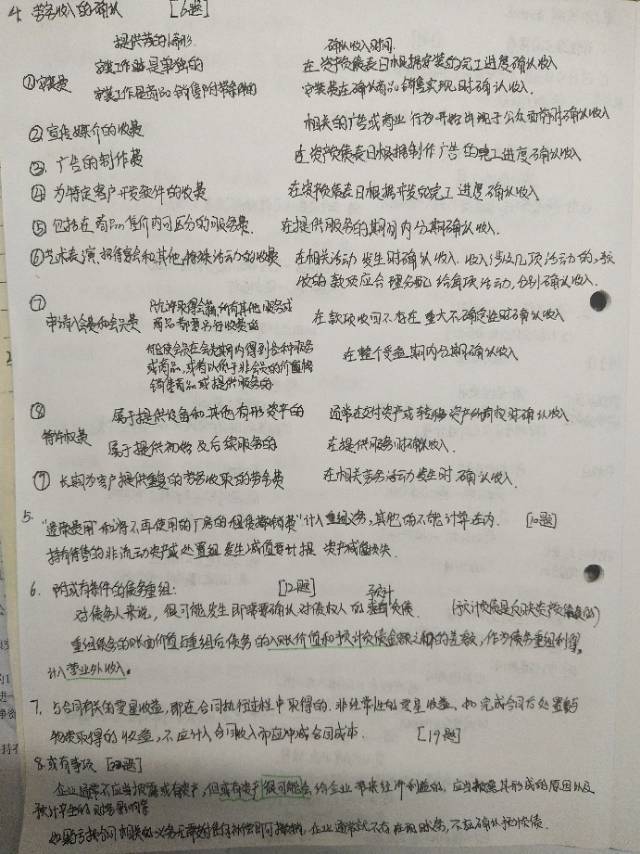 4. 劳务收入的确认 [6题]
提供劳务的情形 确认收入时间
①安装费 安装工作是单独的 在资产负债表日根据安装的完工进度确认收入
安装工作是商品销售附带条件的 安装费在确认商品销售实现时确认收入.
②宣传媒介的收费 相关的广告或商业行为开始出现于公众面前时确认收入
③广告的制作费 在资产负债表日根据制作广告的完工进度确认收入
④为特定客户开发软件的收费 在资产负债表日根据开发的完工进度确认收入
⑤包括在商品售价内可区分的服务费. 在提供服务的期间内分期确认收入.
⑥艺术表演、招待宴会和其他特殊活动的收费 在相关活动发生时确认收入.收入涉及几项活动的,预
收的款项应合理分配给每项活动,分别确认收入.
⑦申请入会费和会员费 只允许取得会籍,所有其他服务或
商品都要另行收费的 在款项收回不存在重大不确定性时确认收入
能使会员在会员期内得到各种服务
或商品,或者以低于非会员的价格
销售商品或提供服务的 在整个受益期内分期确认收入
⑧特许权费 属于提供设备和其他有形资产的 通常在交付资产或转移资产所有权时确认收入
属于提供初始及后续服务的 在提供服务时确认收入.
⑨长期为客户提供重复的劳务收取的劳务费 在相关劳务活动发生时确认收入.
5. 计入重组义务,其他的不能计算在内. [10题]
持有待售的非流动资产或处置组发生减值要计提资产减值损失.
6. 附或有条件的债务重组: [12题]
对债务人来说,很可能发生即需要确认对债权人的预计负债.
重组债务的账面价值与重组后债务的入账价值和预计负债金额之和的差额,作为债务重组利得,
计入营业外收入.
7. 与合同有关的零星收益,即在合同执行过程中取得的.非经常性的零星收益,如完成合同后处置剩
物资取得的收益,不应计入合同收入而应冲减合同成本. [19题]
8. 或有事项
企业通常不应当披露或有资产,但或有资产很可能会给企业带来经济利益的,应当披露其形成的原因以及
预计产生的财务影响等